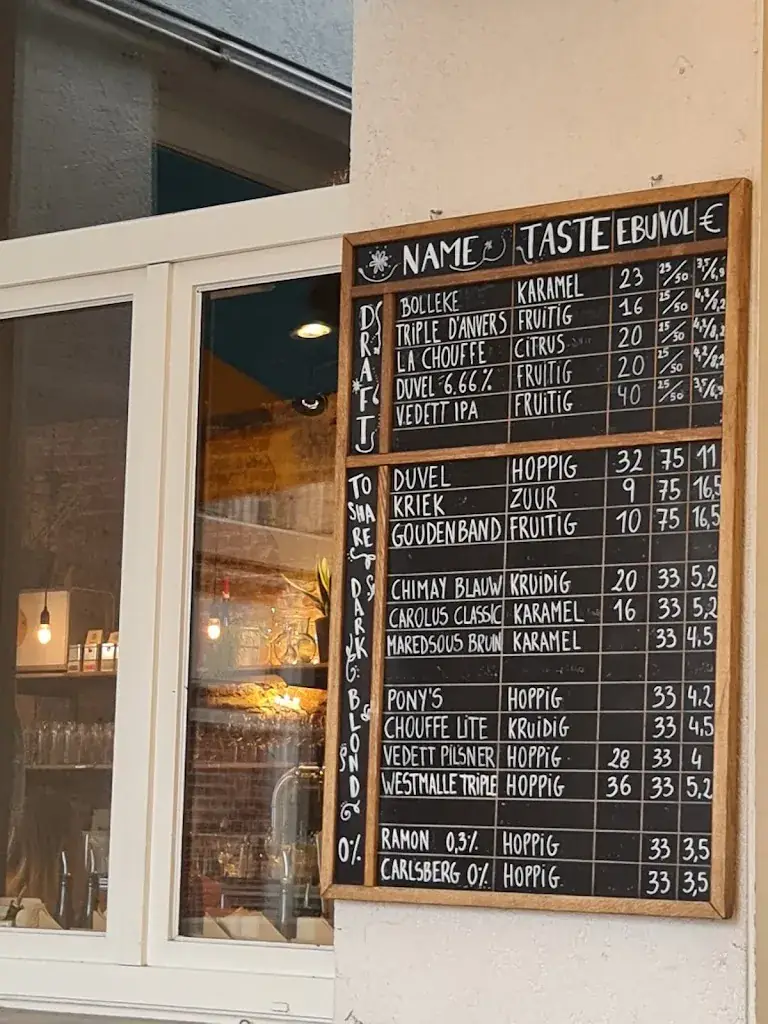 NAME TASTE EBU VOL €
DRAFT
BOLLEKE KARAMEL 23 25/50 3,5/6,9
TRIPLE D'ANVERS FRUITIG 16 25/50 4,2/8,2
LA CHOUFFE CITRUS 20 25/50 4,2/8,2
DUVEL 6.66% FRUITIG 20 25/50 4,2/8,2
VEDETT IPA FRUITIG 40 25/50 3,5/6,9
TO SHARE
DUVEL HOPPIG 32 75 11
KRIEK ZUUR 9 75 16,5
GOUDENBAND FRUITIG 10 75 16,5
DARK & BLOND
CHIMAY BLAUW KRUIDIG 20 33 5,2
CAROLUS CLASSIC KARAMEL 16 33 5,2
MAREDSOUS BRUN KARAMEL 33 4,5
PONY'S HOPPIG 33 4,2
CHOUFFE LITE KRUIDIG 33 4,5
VEDETT PILSNER HOPPIG 28 33 4
WESTMALLE TRIPLE HOPPIG 36 33 5,2
0%
RAMON 0,3% HOPPIG 33 3,5
CARLSBERG 0% HOPPIG 33 3,5